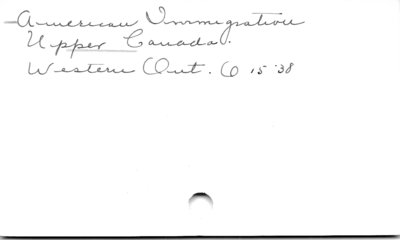 American Immigration
Upper Canada.
Western Ont. O 15 '38